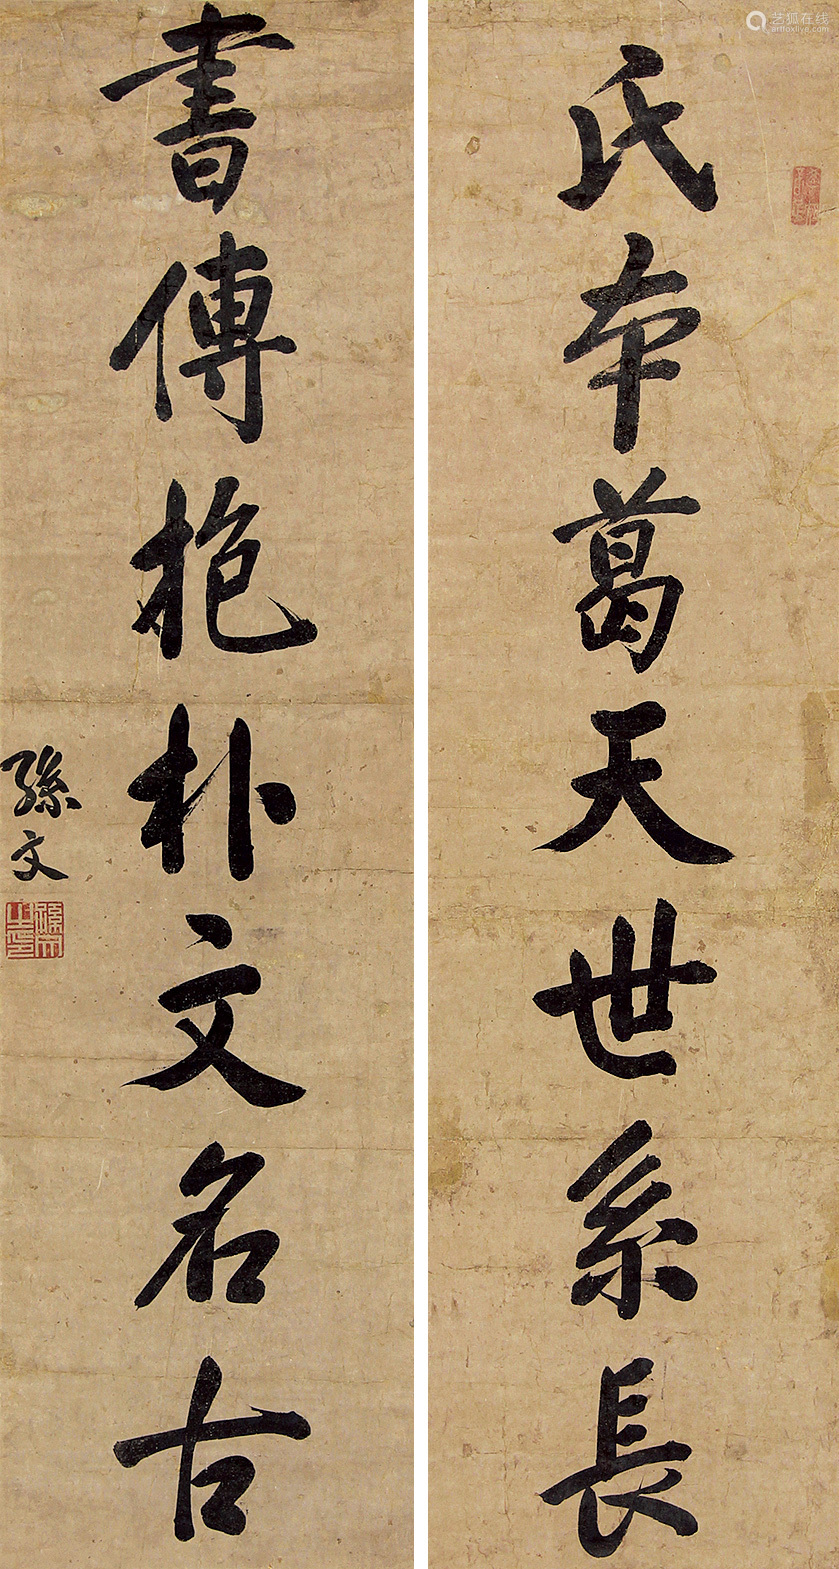 氏本葛天世系長
書傳抱朴文名古
孫文
孫文之印
艺狐在线
artfoxlive.com